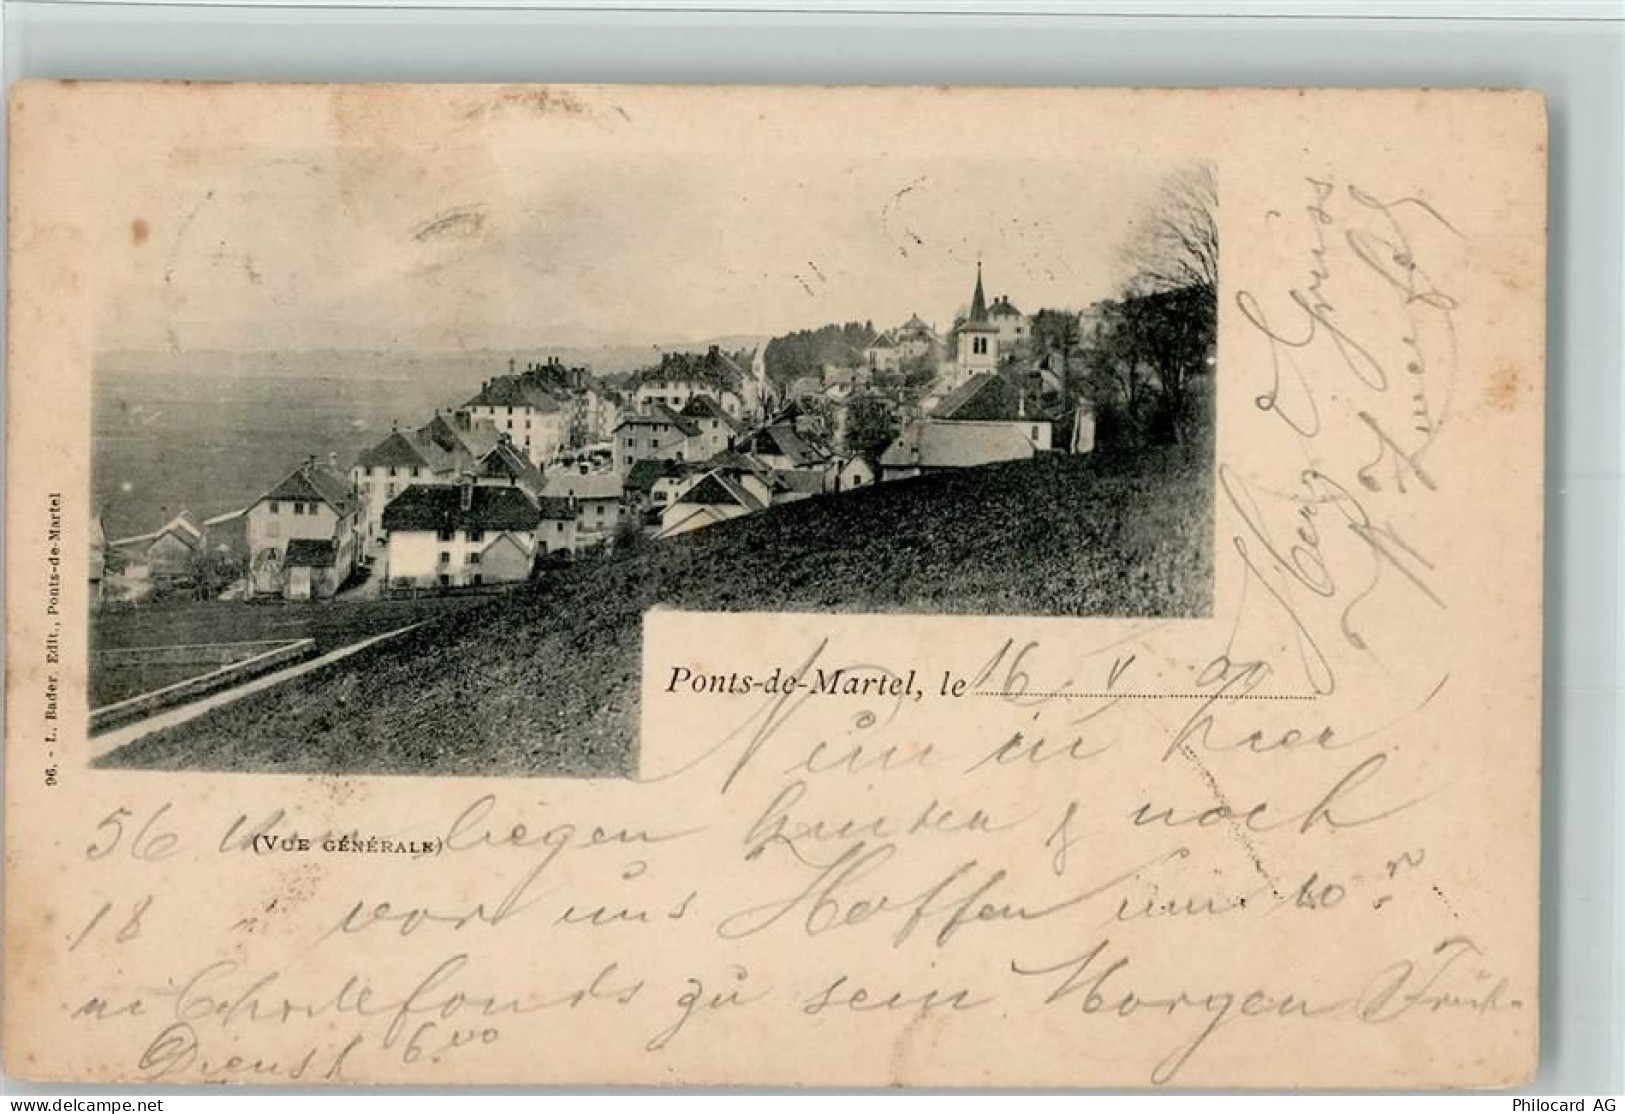 Herz. Gruss
96. - L. Bader, Edit., Ponts-de-Martel
Ponts-de-Martel, le 16. V. 00
Nun in hier
(VUE GÉNÉRALE)
56 liegen hinter & noch
18 " vor uns Hoffen um 10
in Chx de fonds zu sein Morgen Früh-
Dienst 6.00
delcampe.net
Philocard AG